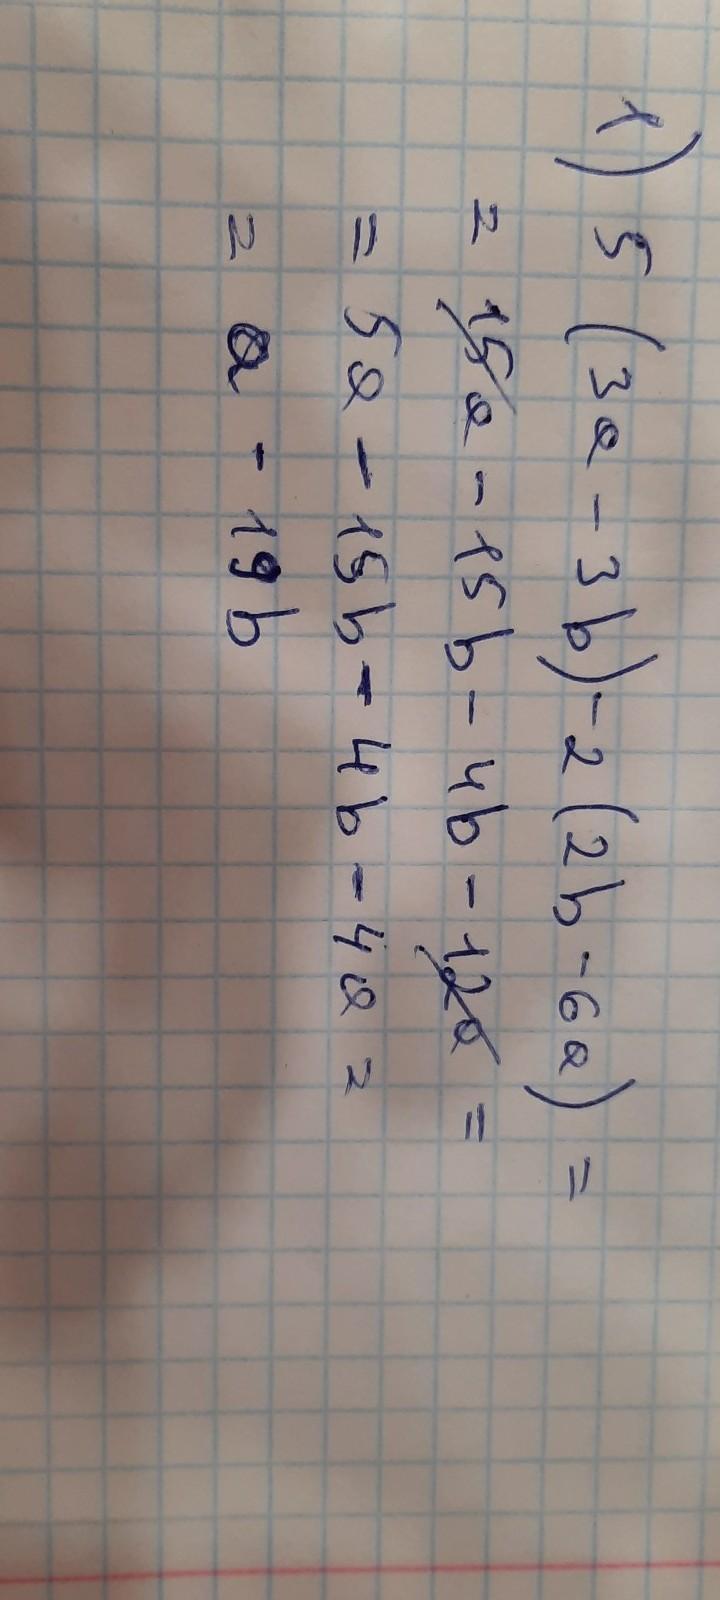 1) 5(3a-3b)-2(2b-6a)=
=15a-15b-4b-12a=
=5a-15b-4b-4a=
=a-19b